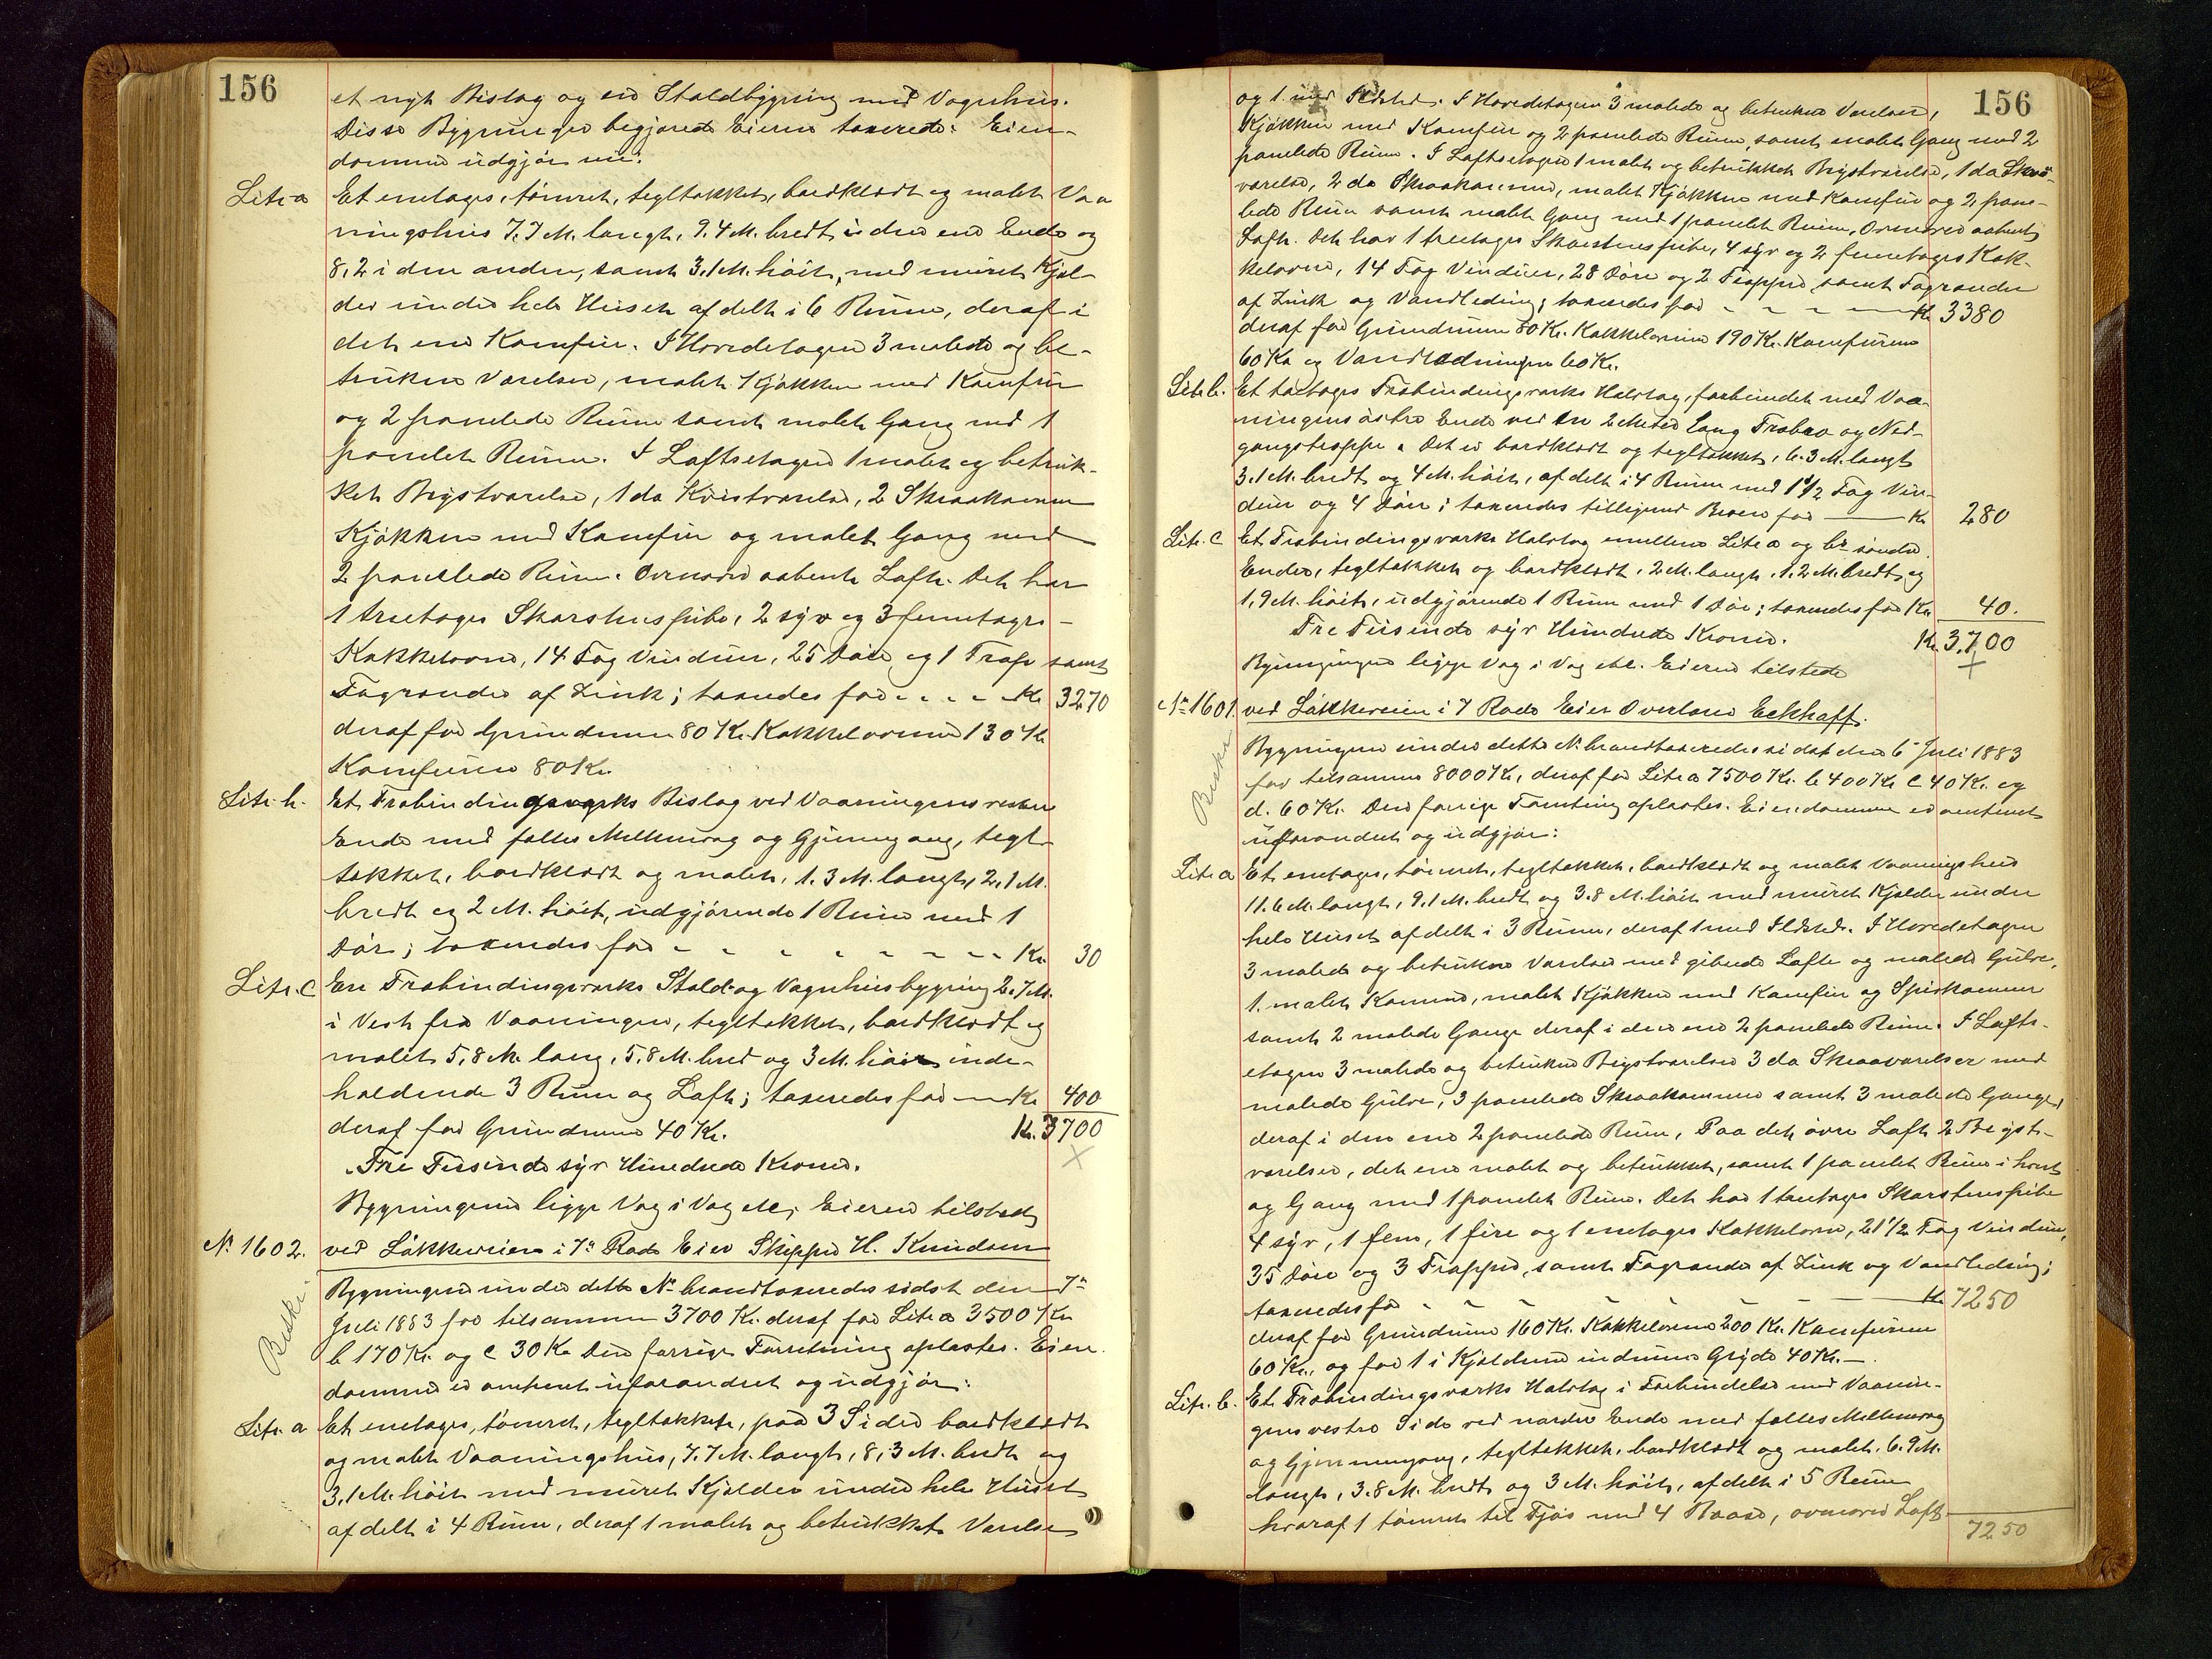 156
et nyt Bislag og en Staldbygning med Vognhus.
Disse Bygninger begjærede Eieren taxerede. Eien-
dommen udgjør nu:
Litr. a Et enetages, tømret, tegltækket, bordklædt og malet Vaa
ningshus 7.7 M. langt, 9.4 M. bredt i den ene Ende og
8,2 i den anden, samt 3.1 M. høit, med muret Kjæl-
der under hele Huset afdelt i 6 Rum, deraf i
det ene Komfur. I Hovedetagen 3 malede og be-
trukne Værelser, malet Kjøkken med Komfur
og 2 panelede Rum samt malet Gang med 1
panelet Rum. I Loftsetagen 1 malet og betruk-
ket Brystværelse, 1 do Kvistværelse, 2 Skraakamre
Kjøkken med Komfur og malet Gang med
2 panelede Rum. Ovenover aabent Loft. Det har
1 treetages Skorstenspibe, 2 syv og 3 femetages
Kakkelovne, 14 Fag Vinduer, 25 Døre og 1 Trap samt
Tagrender af Zink; taxeredes for - - - - Kr 3270
deraf for Grundmur 80 Kr. Kakkelovne 130 Kr
Komfurene 80 Kr.
Litr. b. Et Træbindingsværks Bislag ved Vaaningens vestre
Ende med fælles Mellemvæg og Gjennemgang, tegl-
tækket, bordklædt og malet, 1.3 M. langt, 2.1 M.
bredt og 2 M. høit, udgjørende 1 Rum med 1
Dør; taxeredes for - - - - - - - Kr. 30
Litr. C En Træbindingsværks Stald- og Vognhusbygning 2.7 M.
i Vest fra Vaaningen, tegltækket, bordklædt og
malet 5,8 M. lang, 5,8 M. bred og 3 M. høi inde-
holdende 3 Rum og Loft; taxeredes for — Kr 400
deraf for Grundmur 40 Kr. Kr. 3700
Tre Tusinde syv Hundrede Kroner.
Bygningerne ligge Væg i Væg etc. Eieren tilstede
No 1602. ved Løkkeveien i 7de Rode Eier Skipper H. Knudsen
Bygningerne under dette No brandtaxeredes sidst den 7de
Juli 1883 for tilsammen 3700 Kr. deraf for Litr a 3500 Kr
b 170 Kr. og C 30 Kr. Den forrige Forretning oplæstes. Eien-
dommen er omtrent uforandret og udgjør:
Litr. a Et enetages, tømret, tegltækket, paa 3 Sider bordklædt
og malet Vaaningshus, 7.7 M. langt, 8,3 M. bredt og
3.1 M. høit med muret Kjælder under hele Huset
afdelt i 4 Rum, deraf 1 malet og betrukket Værelse
156
og 1 med Ildsted. I Hovedetagen 3 malede og betrukne Værelser,
Kjøkken med Komfur og 2 panelede Rum, samt malet Gang med 2
panelede Rum. I Loftsetagen 1 malet og betrukket Brystværelse, 1 do Skraa-
værelse, 2 do Skraakamre, malet Kjøkken med Komfur og 2 pane-
lede Rum samt malet Gang med 1 panelet Rum, Ovenover aabent
Loft. Det har 1 treetages Skorstenspibe, 4 syv og 2 femetages Kak-
kelovne, 14 Fag Vinduer, 28 Døre og 2 Trapper samt Tagrender
af Zink og Vandledning; taxeredes for - - - - Kr 3380
deraf for Grundmur 80 Kr. Kakkelovne 190 Kr. Komfurene
60 Kr og Vandledningen 60 Kr.
Litr b. Et toetages Træbindingsværks Halvtag, forbundet med Vaa-
ningens østre Ende ved en 2 Meter lang Træbro og Ned-
gangstrappe. Det er bordklædt og tegltækket, 6.3 M. langt
3.1 M. bredt og 4 M. høit, afdelt i 4 Rum med 1 1/2 Fag Vin-
duer og 4 Døre; taxeredes tilligemed Broen for — Kr 280
Litr. C Et Træbindingsværks Halvtag mellem Litr a og b's søndre
Ender, tegltækket og bordklædt, 2 M. langt, 1.2 M. bredt og
1,9 M. høit, udgjørende 1 Rum med 1 Dør; taxeredes for Kr. 40.
Tre Tusinde syv Hundrede Kroner. Kr. 3,700
Bygningerne ligge Væg i Væg etc. Eieren tilstede
No 1601. ved Løkkeveien i 7 Rode Eier Overlærer Eckhoff.
Bygningerne under dette No brandtaxeredes sidst den 6te Juli 1883
for tilsammen 8000 Kr, deraf for Litr a 7500 Kr. b 400 Kr C 40 Kr. og
d. 60 Kr. Den forrige Forretning oplæstes. Eiendommen er omtrent
uforandret og udgjør:
Litr a Et enetages, tømret, tegltækket, bordklædt og malet Vaaningshus
11.6 M. langt, 9.1 M. bredt og 3.8 M. høit med muret Kjælder under
hele Huset afdelt i 3 Rum, deraf 1 med Ildsted. I Hovedetagen
3 malede og betrukne Værelser med gibsede Lofte og malede Gulve,
1 malet Kammer, malet Kjøkken med Komfur og Spiskammer
samt 2 malede Gange deraf i den ene 2 panelede Rum. I Lofts-
etagen 3 malede og betrukne Brystværelser 3 do Skraaværelser med
malede Gulve, 3 panelede Skraakamre samt 3 malede Gange,
deraf i den ene 2 panelede Rum, Paa det øvre Loft 2 Bryst-
værelser, det ene malet og betrukket, samt 1 panelet Rum i hvert
og Gang med 1 panelet Rum. Det har 1 treetages Skorstenspibe
4 syv, 1 fem, 1 fire og 1 enetages Kakkelovn, 21 1/2 Fag Vinduer,
35 Døre og 3 Trapper, samt Tagrender af Zink og Vandledning;
taxeredes for - - - - - - Kr 7250
deraf for Grundmur 160 Kr. Kakkelovne 200 Kr. Komfuren
60 Kr., og for 1 i Kjælderen indmuret Gryde 40 Kr.—.
Litr. b. Et Træbindingsværks Halvtag i Forbindelse med Vaanin-
gens vestre Side ved nordre Ende med fælles Mellemvæg
og Gjennemgang, tegltækket, bordklædt og malet. 6.9 M.
langt, 3.8 M. bredt og 3 M. høit, afdelt i 5 Rum
hvoraf 1 tømret til Fjøs med 4 Baase, ovenover Loft
7250